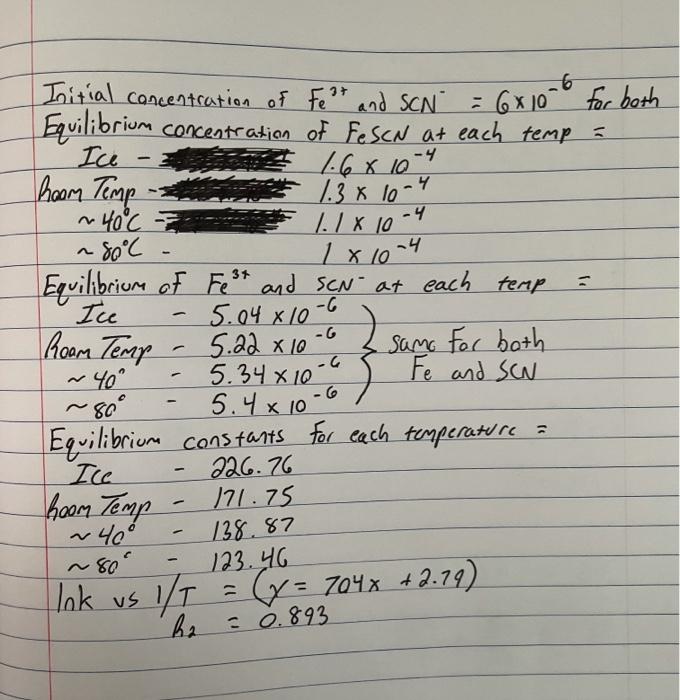 Initial concentration of Fe³⁺ and SCN⁻ = 6 x 10⁻⁶ for both
Equilibrium concentration of FeSCN at each temp =
Ice - 1.6 x 10⁻⁴
Room Temp - 1.3 x 10⁻⁴
~ 40°C - 1.1 x 10⁻⁴
~ 80°C - 1 x 10⁻⁴
Equilibrium of Fe³⁺ and SCN⁻ at each temp =
Ice - 5.04 x 10⁻⁶
Room Temp - 5.22 x 10⁻⁶ } same for both
~ 40° - 5.34 x 10⁻⁶ Fe and SCN
~ 80° - 5.4 x 10⁻⁶
Equilibrium constants for each temperature =
Ice - 226.76
Room Temp - 171.75
~ 40° - 138.87
~ 80° - 123.46
lnk vs 1/T = (y = 704x + 2.79)
R2 = 0.893